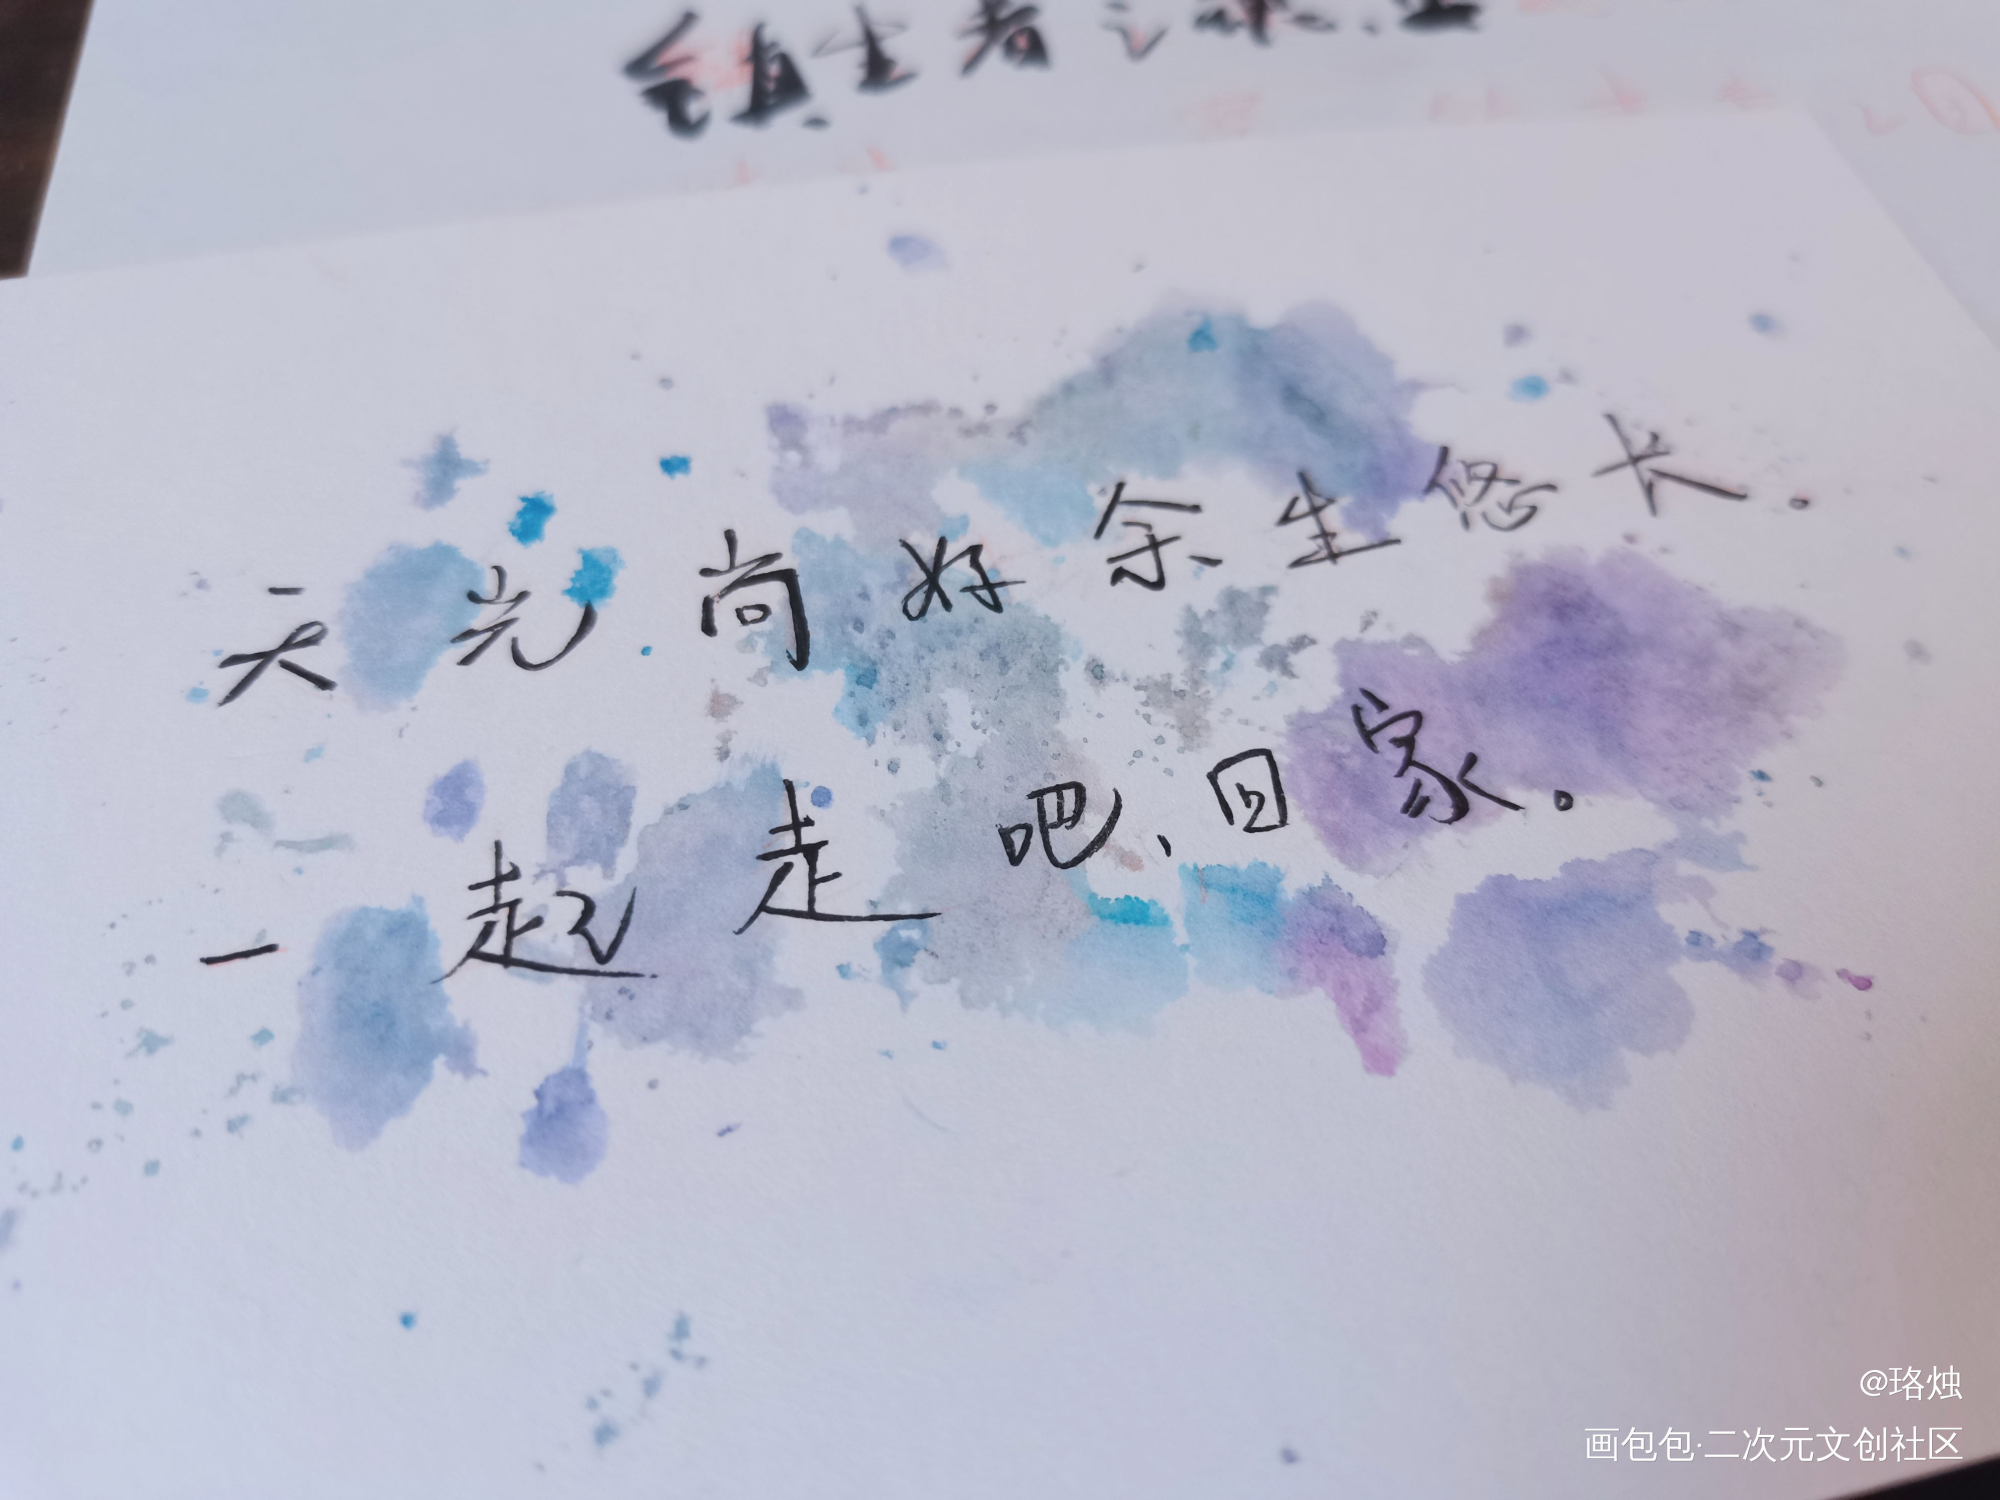 镇生者之
天光尚好余生悠长。
一起走吧、回家。
@珞烛
画包包·二次元文创社区